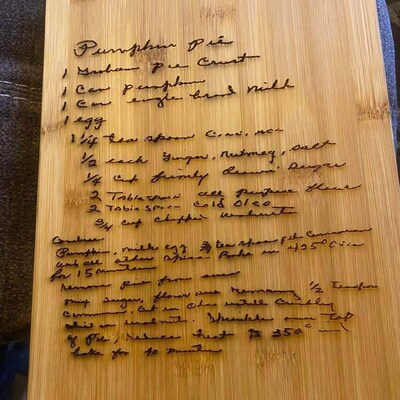 Pumpkin Pie
1 Graham Pie Crust
1 Can Pumpkin
1 Can eagle brand Milk
1 egg
1 1/4 tea spoon
1/2 each Ginger, Nutmeg, salt
1/4 cup firmly Brown Sugar
2 Tablespoon all purpose flour
2 Tablespoon Cold Oleo
3/4 cup Chopped Walnuts
Combine
Pumpkin, milk egg 3/4 tea spoon of Cinnamon
and all other spices Bake in 425° Oven
for 15 Minutes
remove pie from oven
mix sugar, flour and remaining 1/2 teaspoon
Cut in Oleo until Crumbly
stir in walnuts. Sprinkle over top
of Pie, reduce heat to 350°
bake for 40 minutes